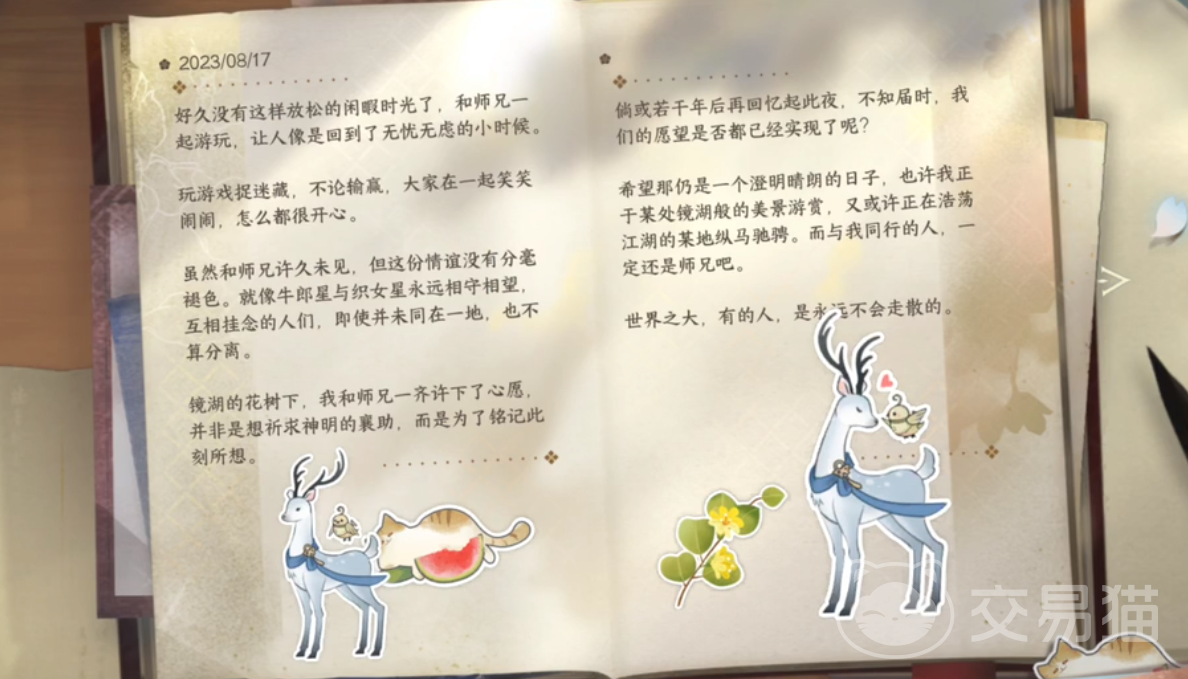 2023/08/17
好久没有这样放松的闲暇时光了，和师兄一
起游玩，让人像是回到了无忧无虑的小时候。
玩游戏捉迷藏，不论输赢，大家在一起笑笑
闹闹，怎么都很开心。
虽然和师兄许久未见，但这份情谊没有分毫
褪色。就像牛郎星与织女星永远相守相望，
互相挂念的人们，即使并未同在一地，也不
算分离。
镜湖的花树下，我和师兄一齐许下了心愿，
并非是想祈求神明的襄助，而是为了铭记此
刻所想。
倘或若干年后再回忆起此夜，不知届时，我
们的愿望是否都已经实现了呢？
希望那仍是一个澄明晴朗的日子，也许我正
于某处镜湖般的美景游赏，又或许正在浩荡
江湖的某地纵马驰骋。而与我同行的人，一
定还是师兄吧。
世界之大，有的人，是永远不会走散的。
交易猫